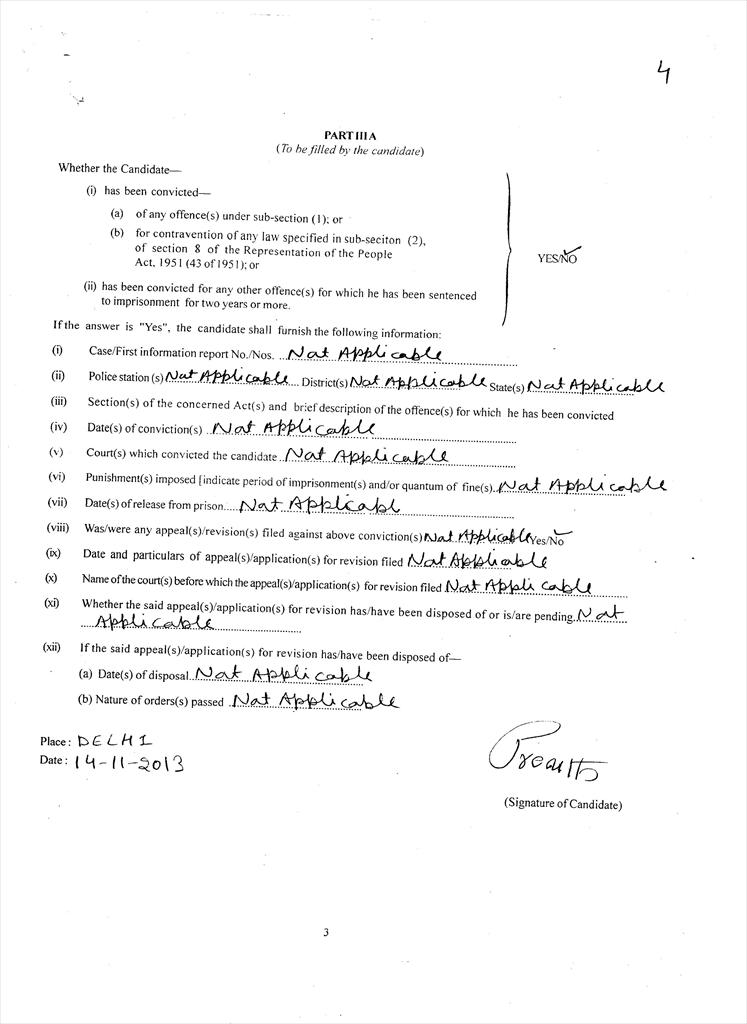 4
PART III A
(To be filled by the candidate)
Whether the Candidate—
(i) has been convicted—
(a) of any offence(s) under sub-section (1); or
(b) for contravention of any law specified in sub-seciton (2),
of section 8 of the Representation of the People
Act, 1951 (43 of 1951); or
YES/NO
(ii) has been convicted for any other offence(s) for which he has been sentenced
to imprisonment for two years or more.
If the answer is "Yes", the candidate shall furnish the following information:
(i) Case/First information report No./Nos. ..Not Applicable
(ii) Police station (s) Not Applicable.... District(s) Not Applicable State(s) Not Applicable
(iii) Section(s) of the concerned Act(s) and brief description of the offence(s) for which he has been convicted
(iv) Date(s) of conviction(s) ..Not Applicable
(v) Court(s) which convicted the candidate ..Not Applicable
(vi) Punishment(s) imposed [indicate period of imprisonment(s) and/or quantum of fine(s)..Not Applicable
(vii) Date(s) of release from prison....Not Applicabl
(viii) Was/were any appeal(s)/revision(s) filed against above conviction(s) Not Applicable Yes/No
(ix) Date and particulars of appeal(s)/application(s) for revision filed Not Applicable
(x) Name of the court(s) before which the appeal(s)/application(s) for revision filed Not Applicable
(xi) Whether the said appeal(s)/application(s) for revision has/have been disposed of or is/are pending. Not
Applicable
(xii) If the said appeal(s)/application(s) for revision has/have been disposed of—
(a) Date(s) of disposal..Not Applicable
(b) Nature of orders(s) passed ..Not Applicable
Place : DELHI
Date : 14-11-2013
(Signature of Candidate)
3